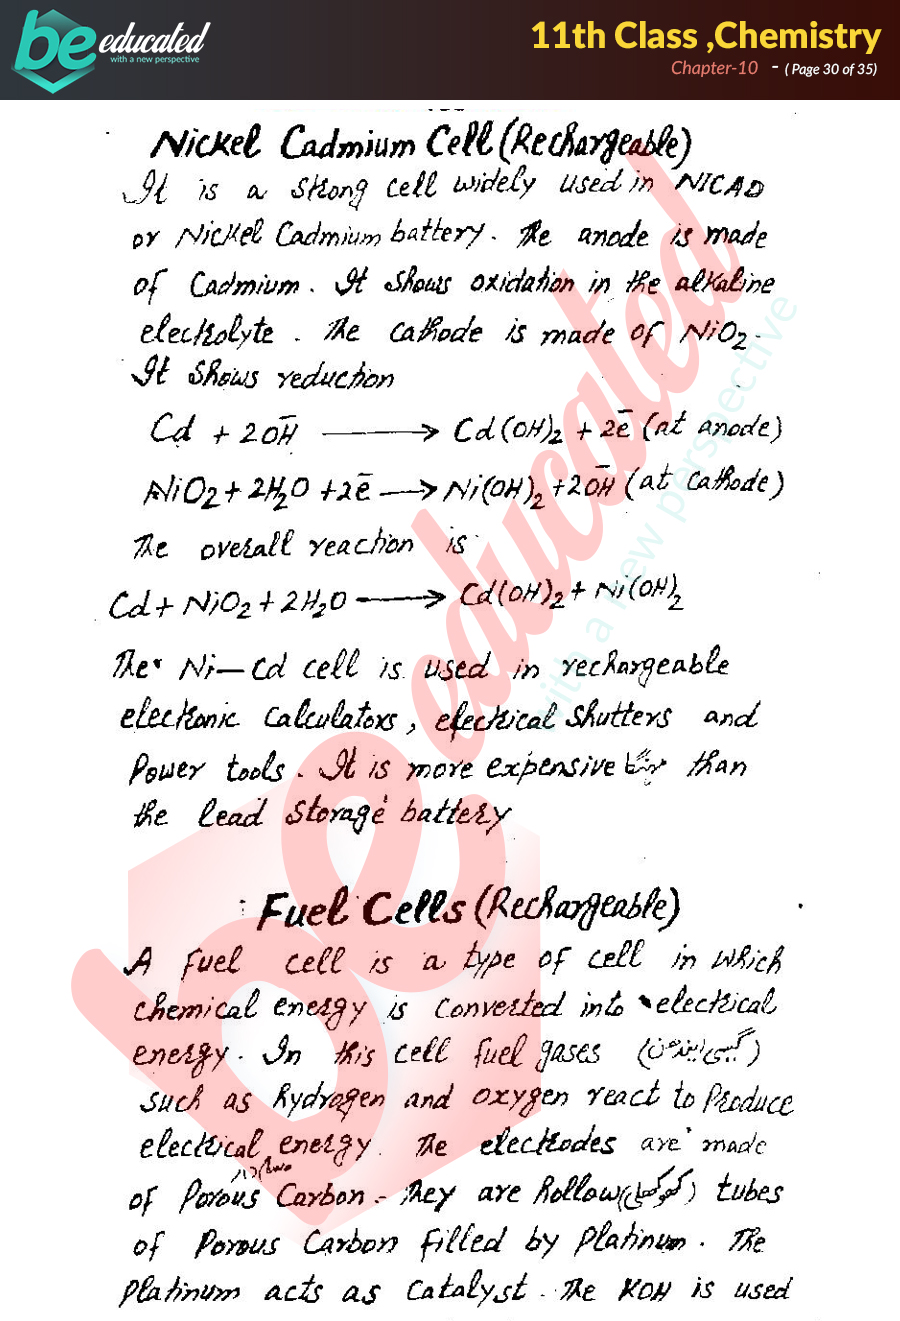 be educated
with a new perspective
11th Class ,Chemistry
Chapter-10 - ( Page 30 of 35)
Nickel Cadmium Cell (Rechargeable)
It is a strong cell widely used in NICAD
or Nickel Cadmium battery. The anode is made
of Cadmium. It shows oxidation in the alkaline
electrolyte. The cathode is made of NiO₂.
It shows reduction
Cd + 2OH⁻ ⟶ Cd(OH)₂ + 2e⁻ (at anode)
NiO₂ + 2H₂O + 2e⁻ ⟶ Ni(OH)₂ + 2OH⁻ (at cathode)
The overall reaction is
Cd + NiO₂ + 2H₂O ⟶ Cd(OH)₂ + Ni(OH)₂
The Ni—Cd cell is used in rechargeable
electronic calculators, electrical shutters and
Power tools. It is more expensive than
the lead storage battery
Fuel Cells (Rechargeable)
A fuel cell is a type of cell in which
chemical energy is converted into electrical
energy. In this cell fuel gases
such as hydrogen and oxygen react to Produce
electrical energy. The electrodes are made
of Porous Carbon. They are hollow tubes
of Porous Carbon filled by Platinum. The
Platinum acts as Catalyst. The KOH is used
be educated
with a new perspective